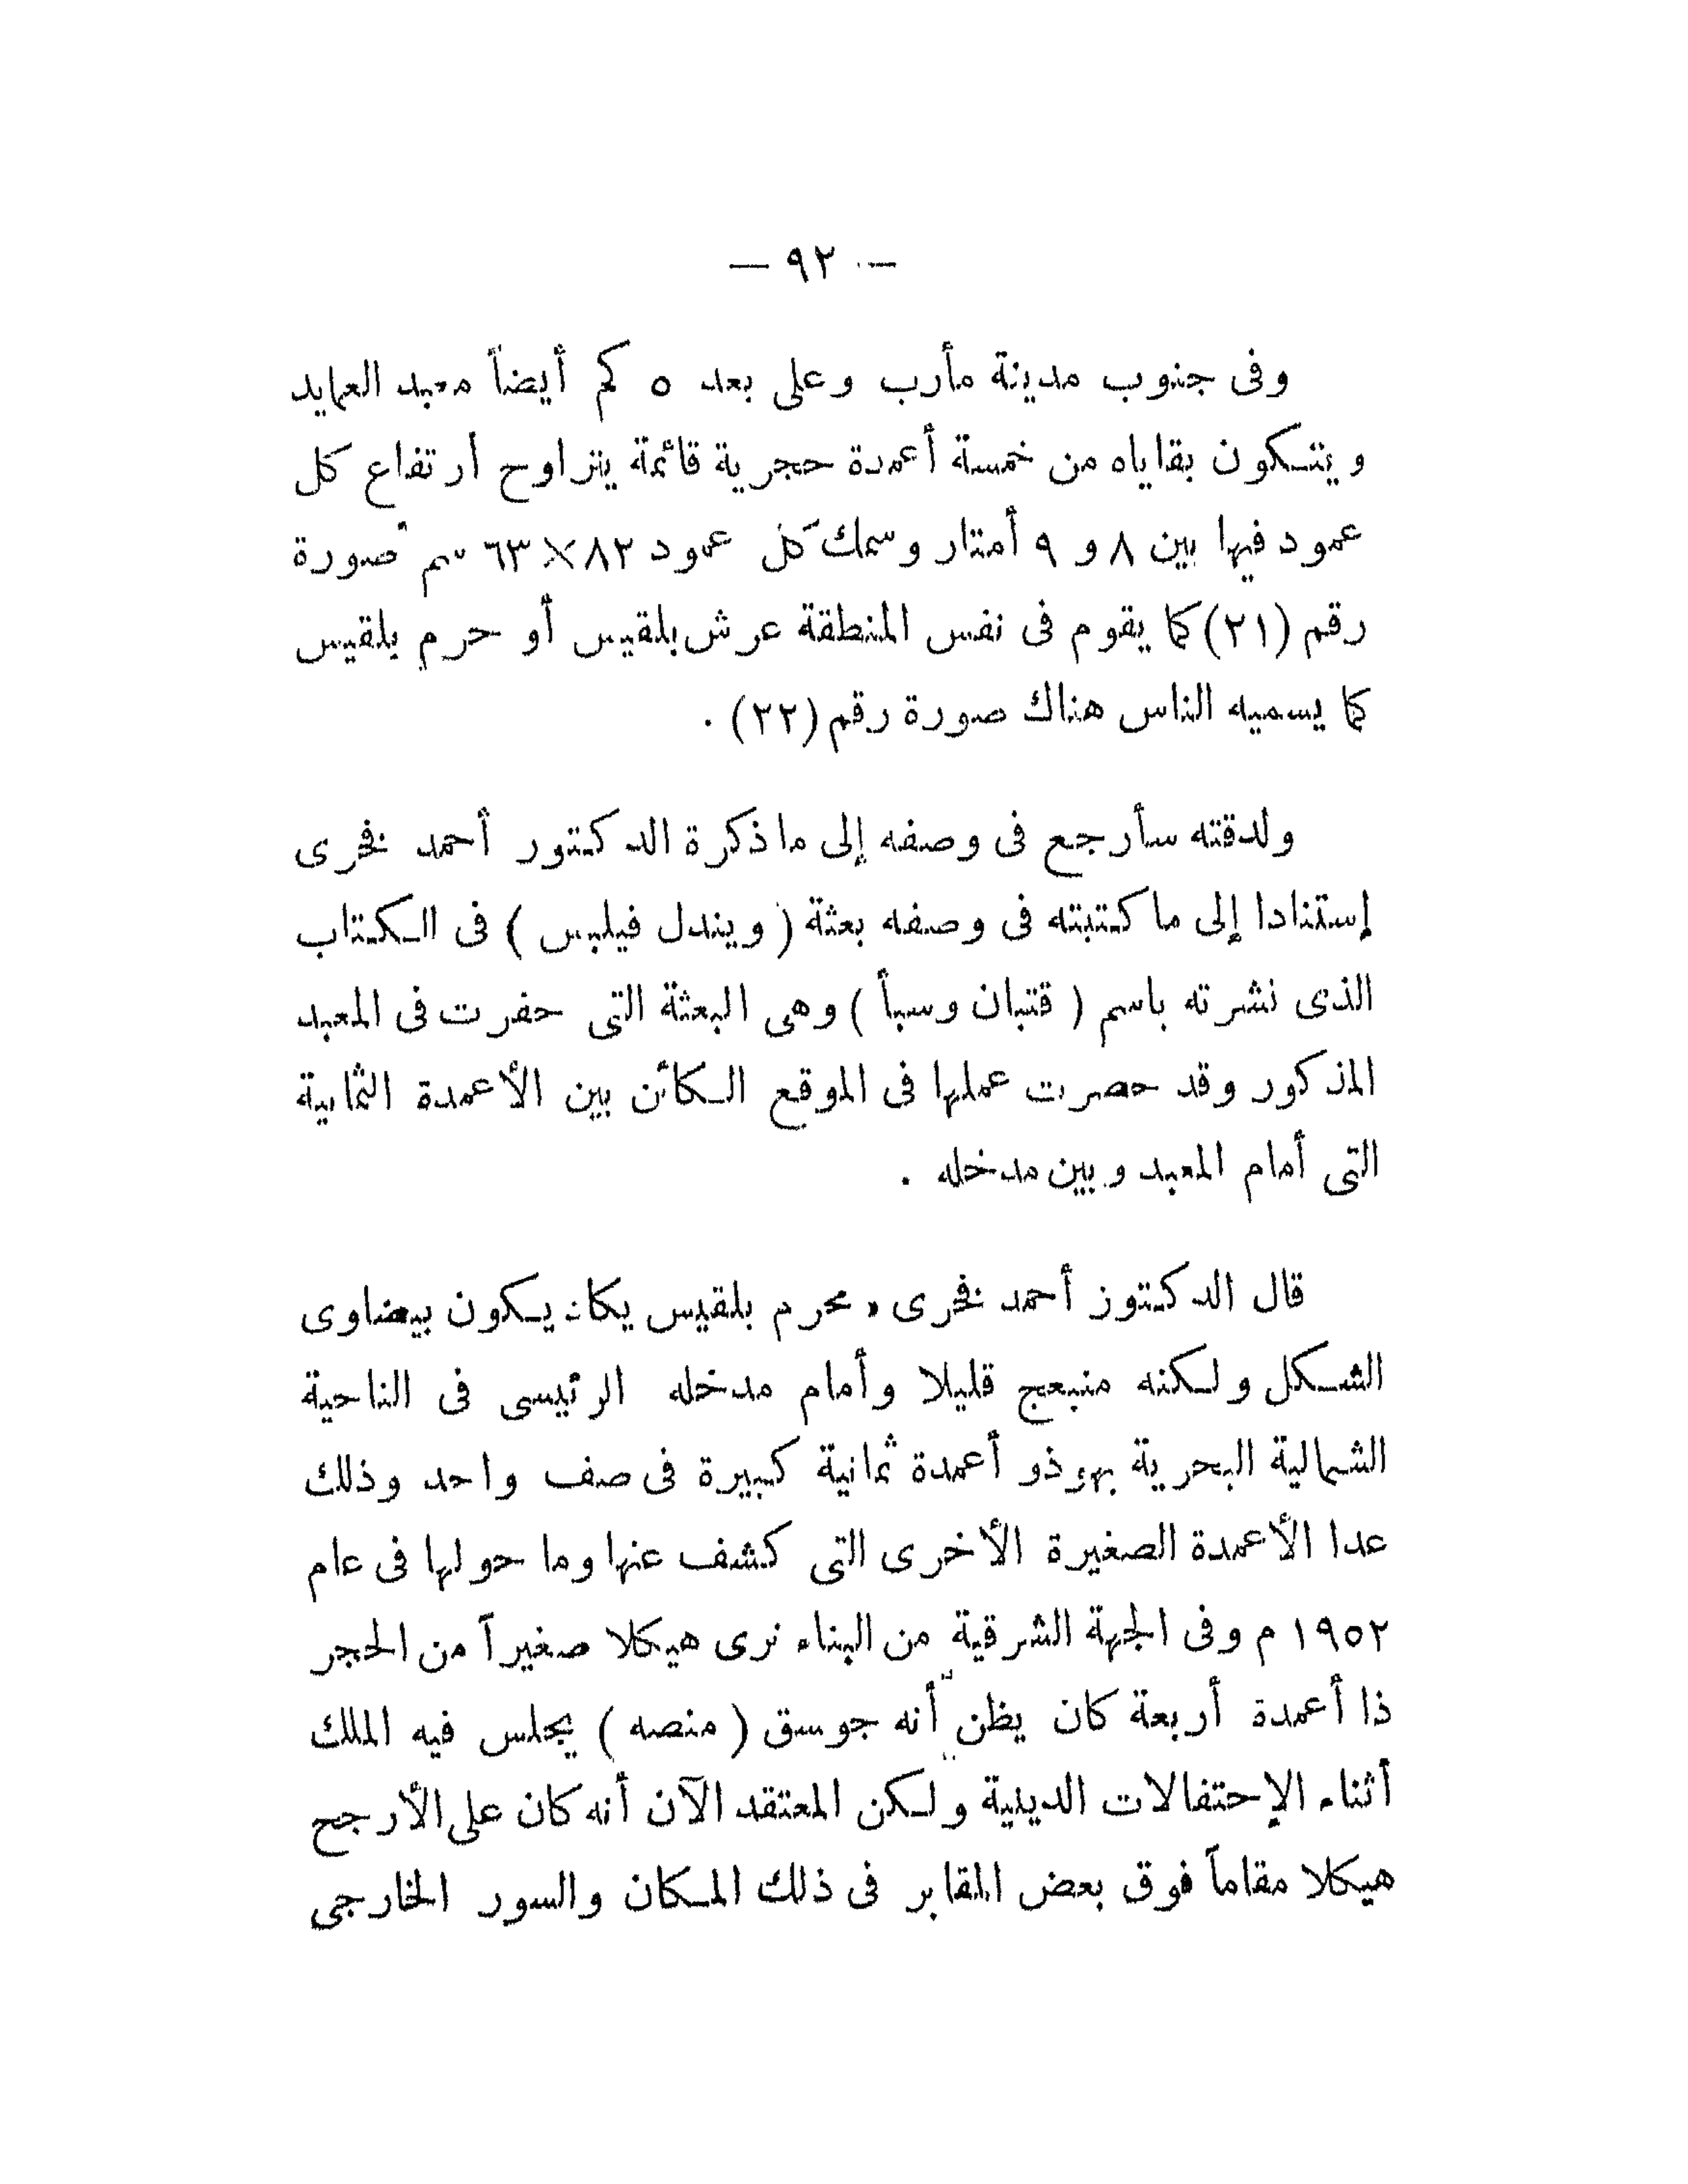 — ٩٢ —
وفى جنوب مدينة مأرب وعلى بعد ٥ كم أيضاً معبد العمايد
ويتكون بقاياه من خمسة أعمدة حجرية قائمة يتراوح ارتفاع كل
عمود فيها بين ٨ و ٩ أمتار وسمك كل عمود ٨٢×٦٣ سم صورة
رقم (٢١) كما يقوم فى نفس المنطقة عرش بلقيس أو حرم بلقيس
كما يسميه الناس هناك صورة رقم (٢٢) .
ولدقته سأرجع فى وصفه إلى ما ذكرة الدكتور أحمد فخرى
إستنادا إلى ما كتبته فى وصفه بعثة ( ويندل فيلبس ) فى الكتاب
الذى نشرته باسم ( قتبان وسبأ ) وهى البعثة التى حفرت فى المعبد
المذكور وقد حصرت عملها فى الموقع الكائن بين الأعمدة الثمانية
التى أمام المعبد وبين مدخله .
قال الدكتوز أحمد فخرى « محرم بلقيس يكاد يكون بيضاوى
الشكل ولكنه منبعج قليلا وأمام مدخله الرئيسى فى الناحية
الشمالية البحرية بهو ذو أعمدة ثمانية كبيرة فى صف واحد وذلك
عدا الأعمدة الصغيرة الأخرى التى كشف عنها وما حولها فى عام
١٩٥٢ م وفى الجهة الشرقية من البناء نرى هيكلا صغيراً من الحجر
ذا أعمدة أربعة كان يظن أنه جوسق ( منصه ) يجلس فيه الملك
أثناء الإحتفالات الدينية ولكن المعتقد الآن أنه كان على الأرجح
هيكلا مقاماً فوق بعض المقابر فى ذلك المكان والسور الخارجى